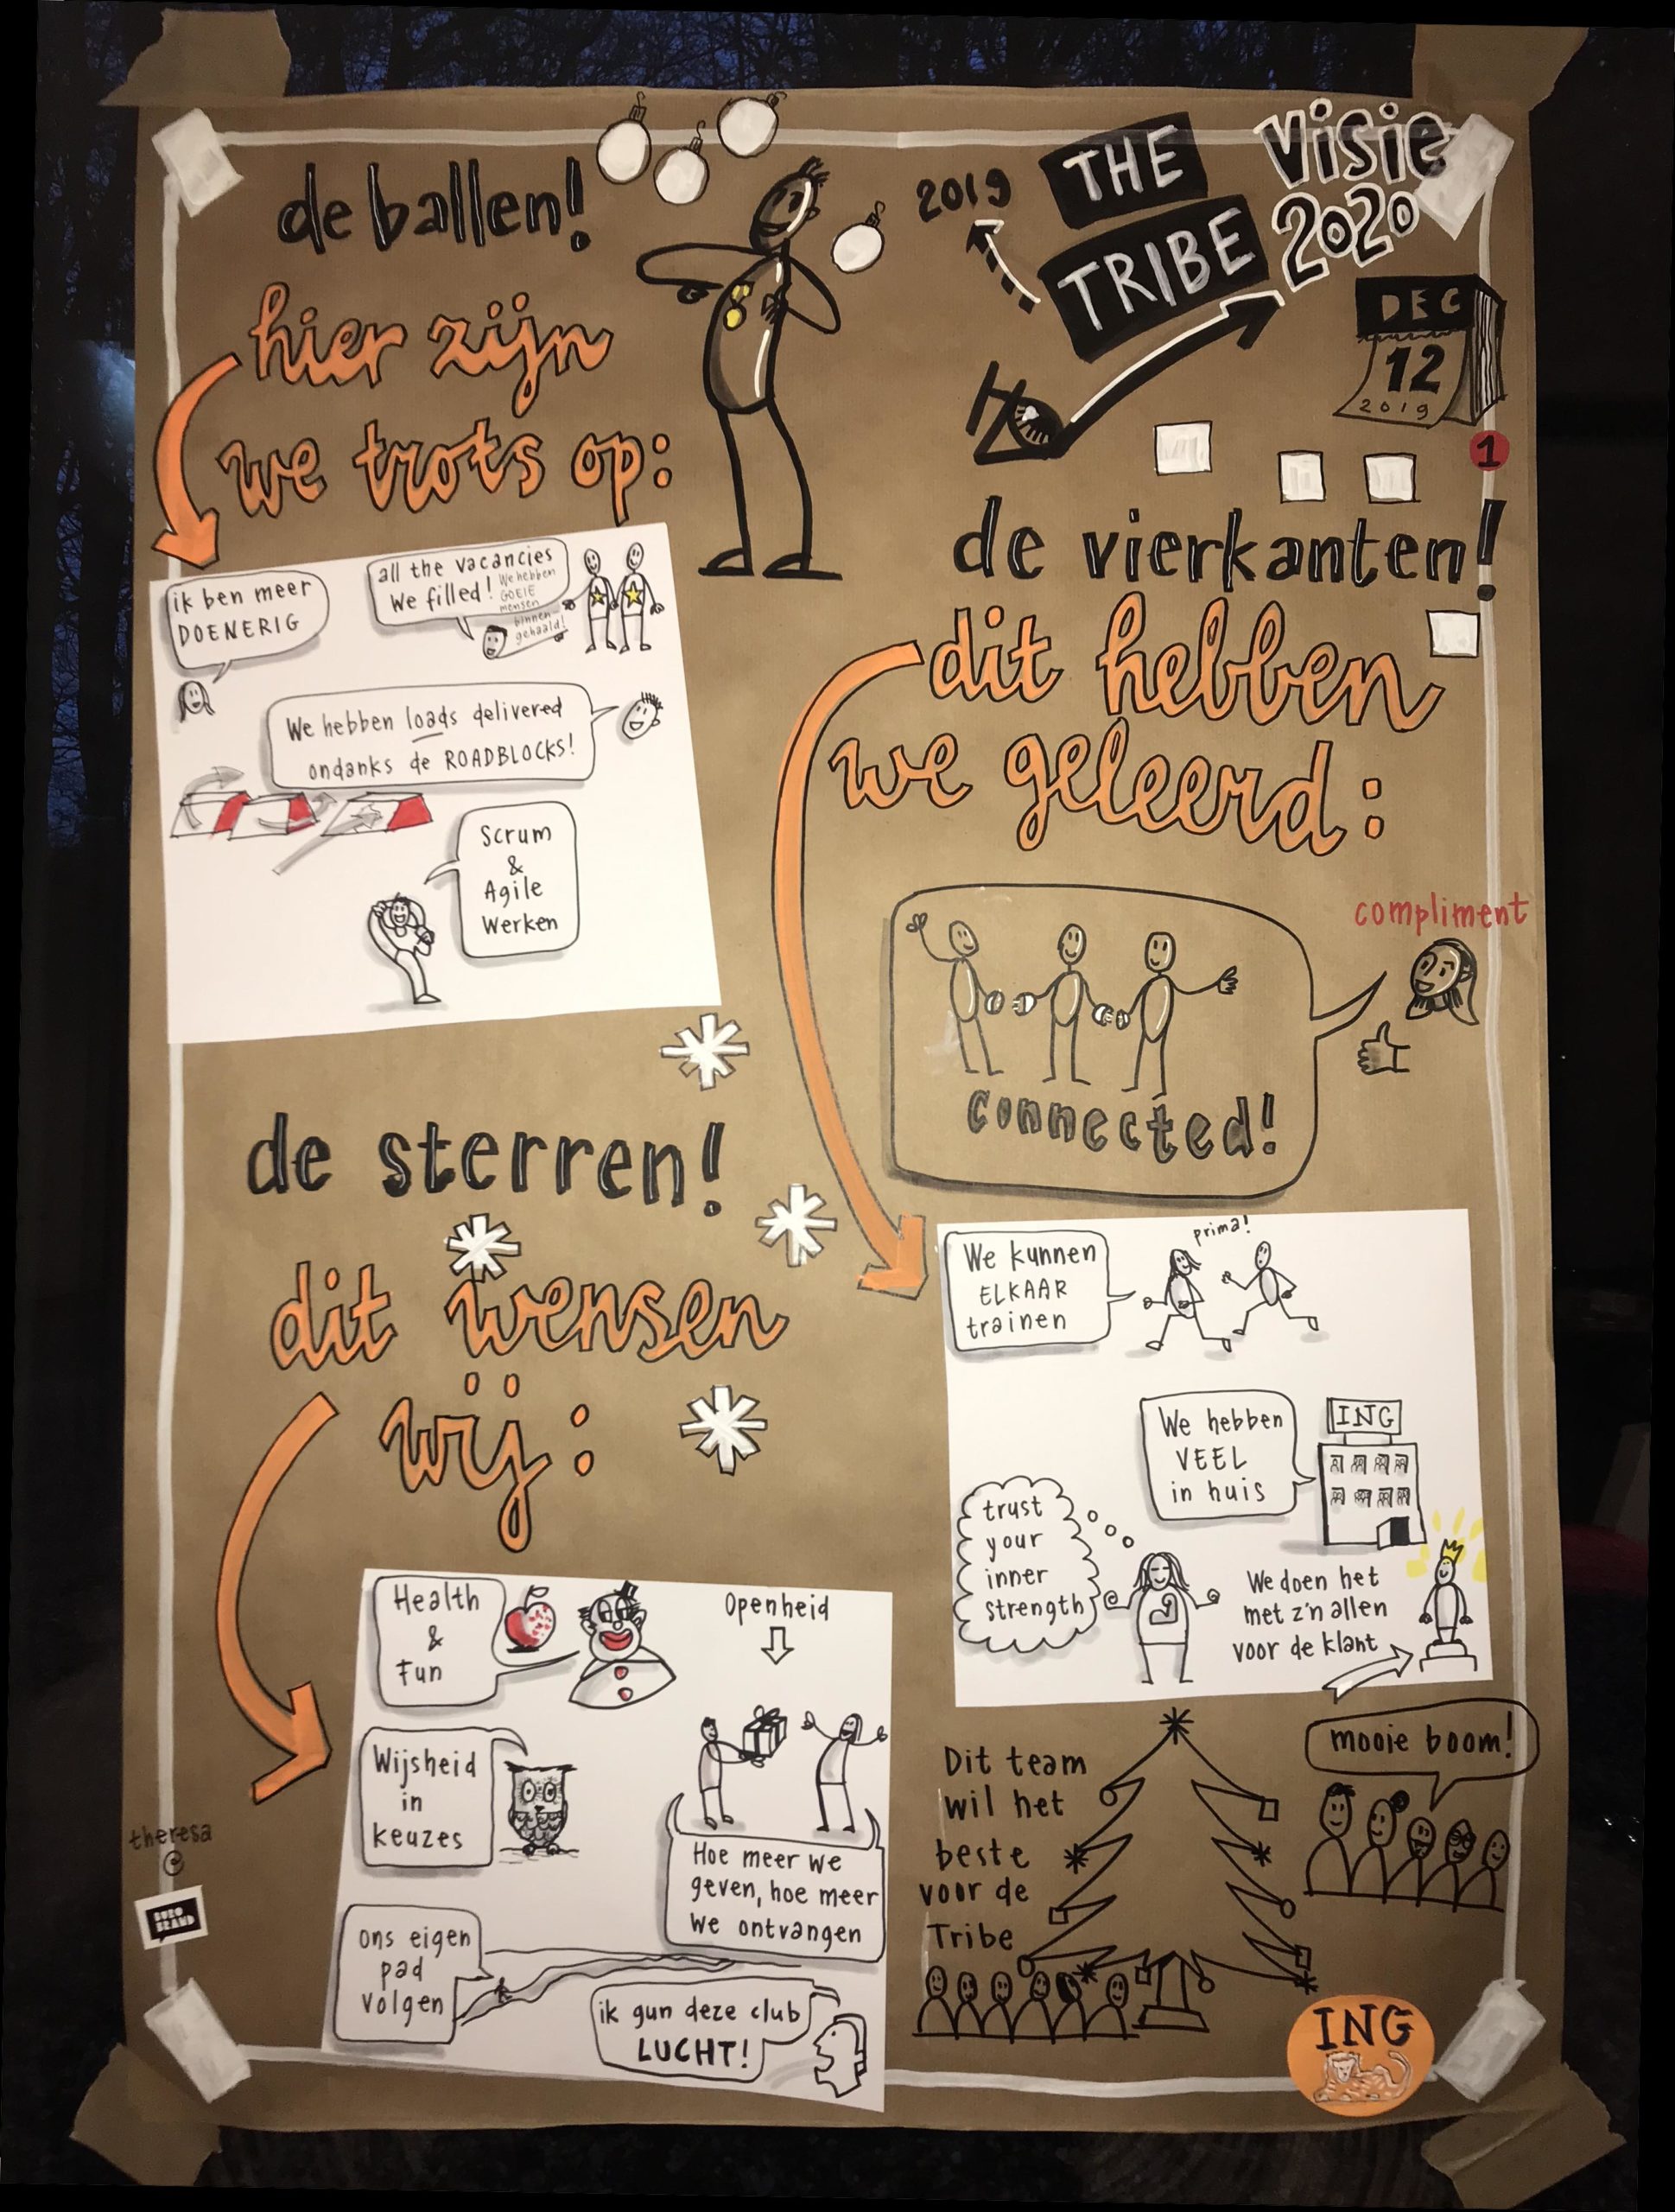 de ballen!
hier zijn
we trots op:
ik ben meer
DOENERIG
all the vacancies
We filled!
We hebben
GOEIE
mensen
binnen
gehaald!
We hebben loads delivered
ondanks de ROADBLOCKS!
Scrum
&
Agile
Werken
2019
THE
TRIBE
Visie
2020
DEC
12
2019
1
de vierkanten!
dit hebben
we geleerd:
compliment
connected!
We kunnen
ELKAAR
trainen
prima!
We hebben
VEEL
in huis
ING
trust
your
inner
strength
We doen het
met z'n allen
voor de klant
de sterren!
dit wensen
wij:
Health
&
Fun
Openheid
Wijsheid
in
keuzes
Hoe meer we
geven, hoe meer
We ontvangen
ons eigen
pad
volgen
ik gun deze club
LUCHT!
Dit team
wil het
beste
voor de
Tribe
mooie boom!
theresa
BURO
BRAND
ING